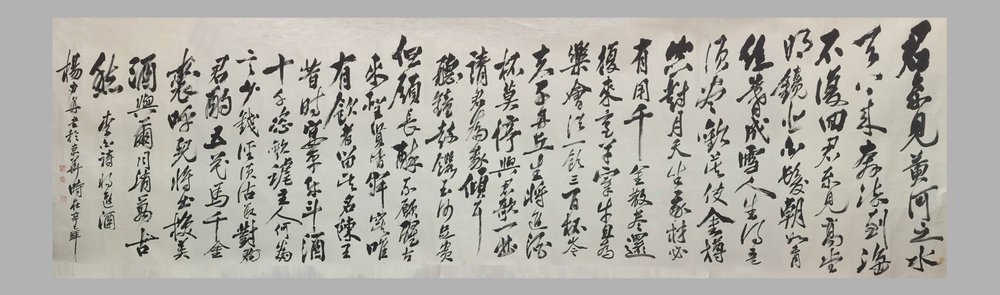 君不見黄河之水
天上来奔流到海
不復回君不見高堂
明鏡悲白髮朝如青
丝暮成雪人生得意
須尽歡莫使金樽
空對月天生我材必
有用千金散尽還
復來烹羊宰牛且為
樂會須一飲三百杯岑
夫子丹丘生將進酒
杯莫停與君歌一曲
請君為我傾耳
聽鐘鼓饌玉何足貴
但願長醉不願醒古
来聖賢皆寂寞唯
有飲者留其名陳王
昔时宴平乐斗酒
十千恣歡謔主人何為
言少錢徑須沽取對
君酌五花馬千金
裘呼兒將出換美
酒與爾同销萬古
愁 李白詩將進酒
楊 書於 時在辛